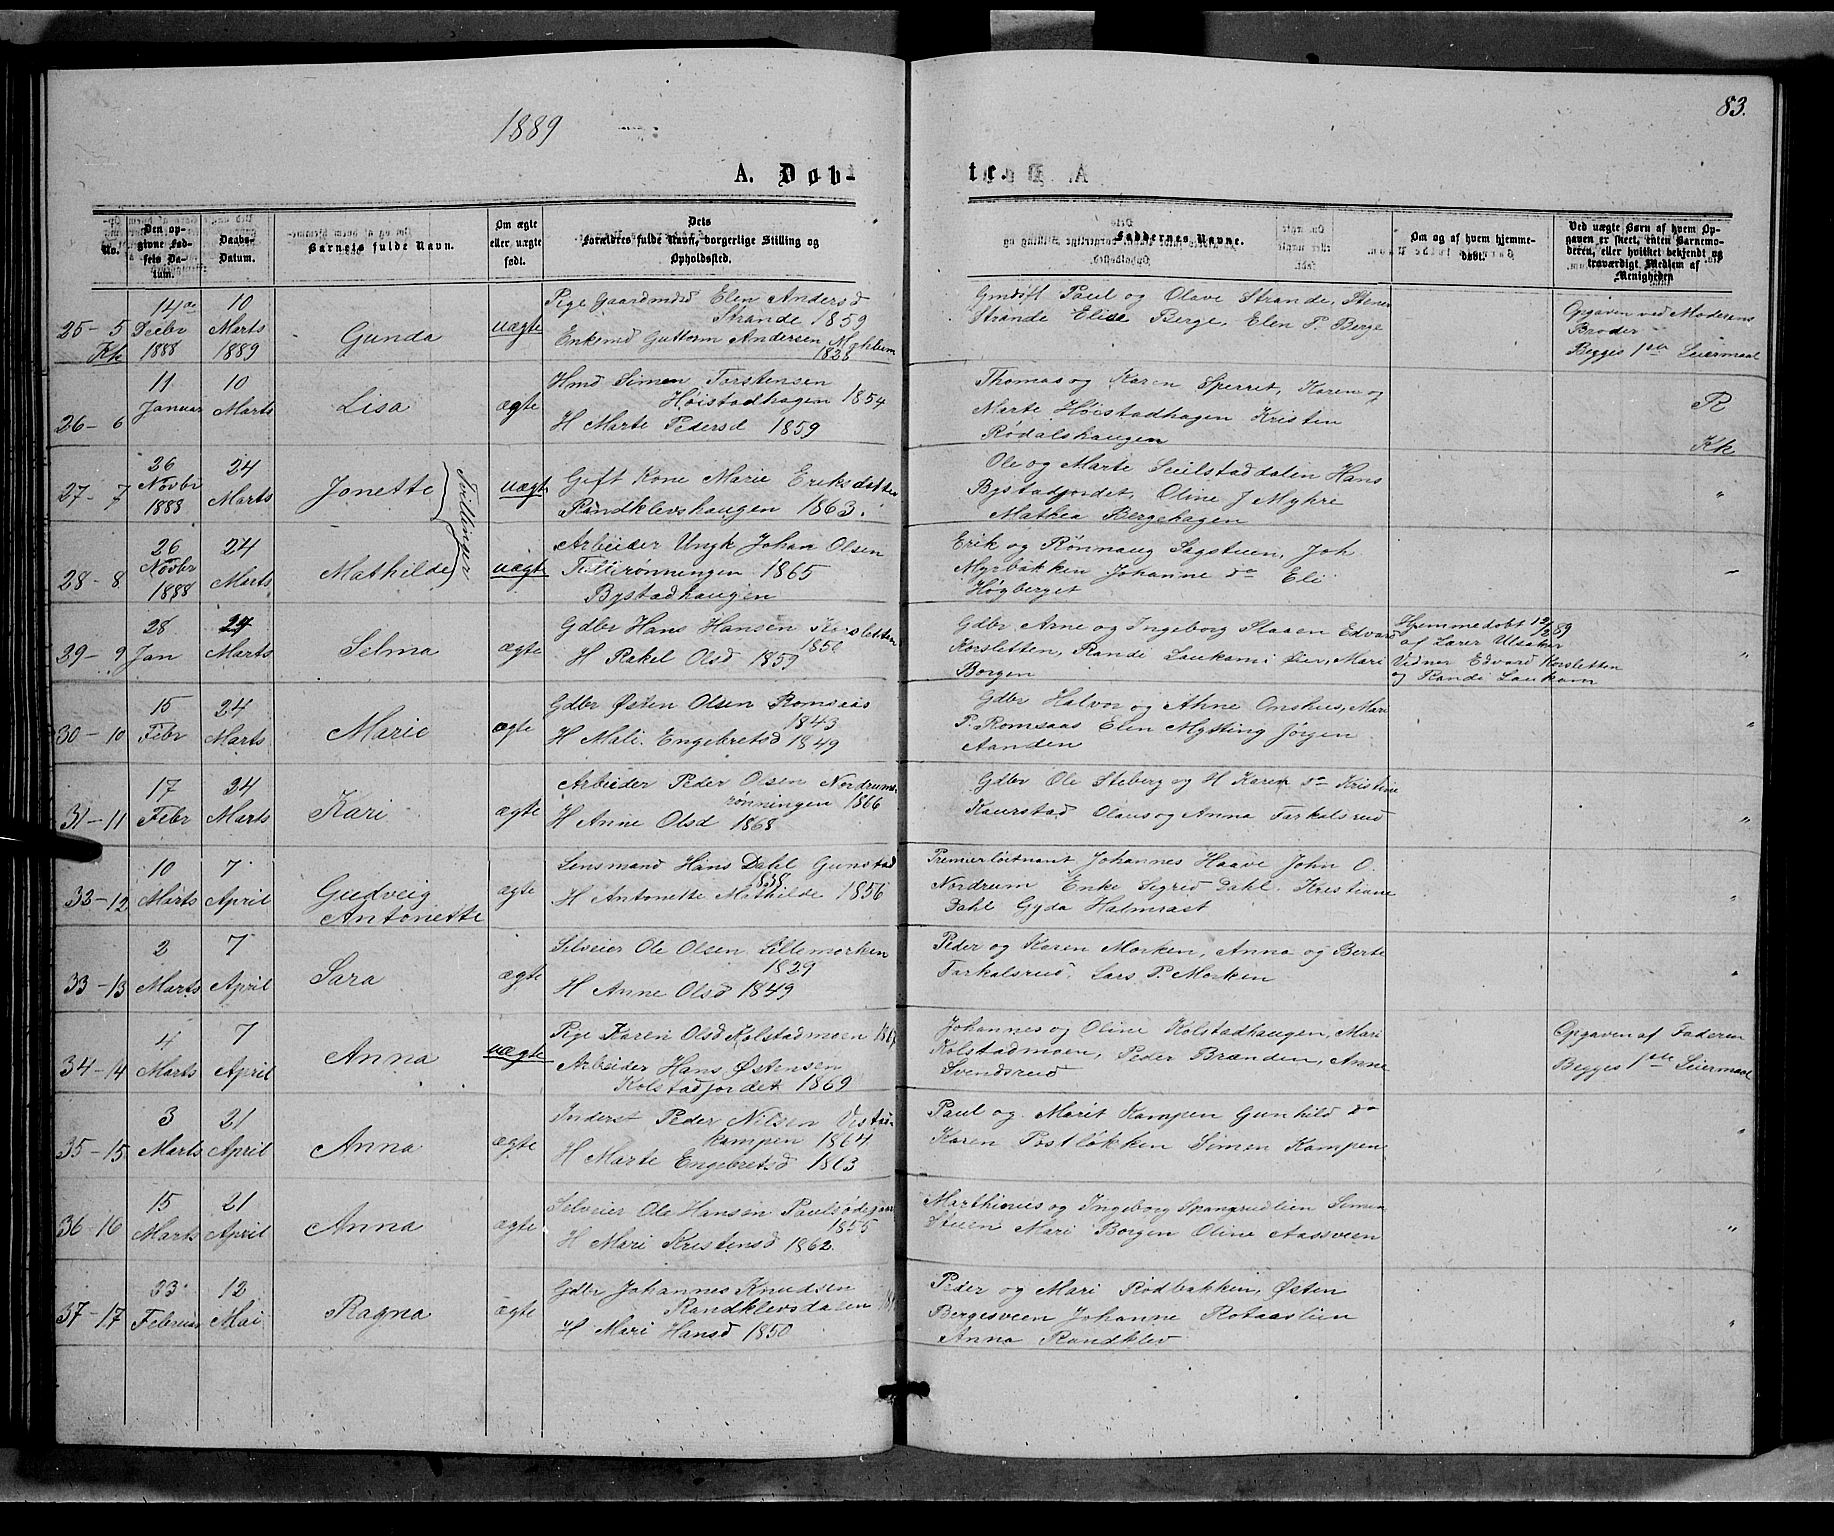 1889
83.
A. Døb-
te.
No.
Den op-
givne Fød-
sels Da-
tum.
Daabs-
Datum.
Barnets fulde Navn.
Om ægte
eller uægte
født.
Dets
Forældres fulde Navn, borgerlige Stilling og
Opholdssted.
Faddernes Navne.
Om og af hvem hjemme-
døbt.
Ved uægte Børn af hvem Op-
gaven er skeet, enten Barnemo-
deren, eller hvilket bekjendt og
troværdigt Medlem af
Menigheden
25-5
Kk
14de
Febr
1888
10
Marts
1889
Gunda
uægte
Pige Gaardmdsd Elen Andersd
Strande 1859
Enkemd Guttorm Andersen Mæhlum
1838
Gmdsft Paul og Olave Strande, Stener
Strande Elise Berge, Elen P. Berge
Opgaven ved Moderens
Broder
Begges 1ste Leiermaal
26-6
11
Januar
10
Marts
Lisa
ægte
Hmd Simen Torstensen
Høistadhagen 1854
H Marte Pedersd 1859
Thomas og Karen Sperret, Karen og
Marte Høistadhagen Kristen
Rødalshaugen
R
Kk
27-7
26
Novbr
1888
24
Marts
Jonette
Tvillinger
uægt
Gift Kone Marie Eriksdatter
Randklevshaugen 1863.
Ole og Marte Seilstaddalen Hans
Bystadjordet, Oline J Myhre
Mathea Bergehagen
"
28-8
26
Novbr
1888
24
Marts
Mathilde
uægte
Arbeider Ungk Johan Olsen
Tollerønningen 1865
Bystadhaugen
Erik og Rønnaug Sagstuen, Joh
Myrbakken Johanne do Eli
Høgberget
"
29-9
28
Jan
24
Marts
Selma
ægte
Gdbr Hans Hansen Korsletten
1850
H Rakel Olsd 1859
Gdbr Arne og Ingeborg Staaen Edvard
Korsletten, Randi Laukam Øier, Mari
Borgen
Hjemmedøbt 12/2 89
af Lærer Ulsaker
Vidner Edvard Korsletten
og Randi Laukam
"
30-10
15
Febr
24
Marts
Marie
ægte
Gdbr Østen Olsen Romsaas
1843
H Mali Engebretsd 1849
Gdbr Halvor og Ahne Omshus, Mari
P. Romsaas Elen Mytting Jørgen
Aanden
"
31-11
17
Febr
24
Marts
Kari
ægte
Arbeider Peder Olsen Nordrums-
rønningen 1866
H Anne Olsd 1868
Gdbr Ole Steberg og H Karen do Kristine
Kaurstad Olaus og Anna Tarkalsrud
"
33-12
10
Marts
7
April
Gudveig
Antonette
ægte
Lensmand Hans Dahl Gunstad
1838
H Antonette Mathilde 1856
Premierløitnant Johannes Haave John O.
Nordrum Enke Sigrid Dahl. Kristiane
Dahl Gyda Halmrast
"
33-13
2
Marts
7
April
Sara
ægte
Selveier Ole Olsen Lillemorken
1829
H Anne Olsd 1849
Peder og Karen Morken, Anna og Berte
Tarkalsrud, Lars P. Morken
"
34-14
4
Marts
7
April
Anna
uægte
Pige Karen Olsd Kolstadmoen
Arbeider Hans Østensen
Kolstadjordet 1869
Johannes og Oline Kolstadhaugen, Mari
Kolstadmoen, Peder Brænden, Anne
Svendsrud
Opgaven af Faderen
Begges 1ste Leiermaal
35-15
3
Marts
21
April
Anna
ægte
Inderst Peder Nilsen Vestad-
kampen 1864
H Marte Engebretsd 1863
Paul og Marit Kampen Gunhild do
Karen Postløkken Simen Kampen
"
36-16
15
Marts
21
April
Anna
ægte
Selveier Ole Hansen Paulsødegaard
1855
H Mari Kristensd 1862.
Marthinus og Ingeborg Spangrudlien Simen
Stuen Mari Borgen Oline Aassveen
"
37-17
23
Februar
12
Mai
Ragna
ægte
Gdbr Johannes Knudsen
Randklevsdalen
H Mari Hansd 1850
Peder og Mari Rødbakken, Østen
Bergesveen Johanne Rotaaslien
Anna Randklev
"